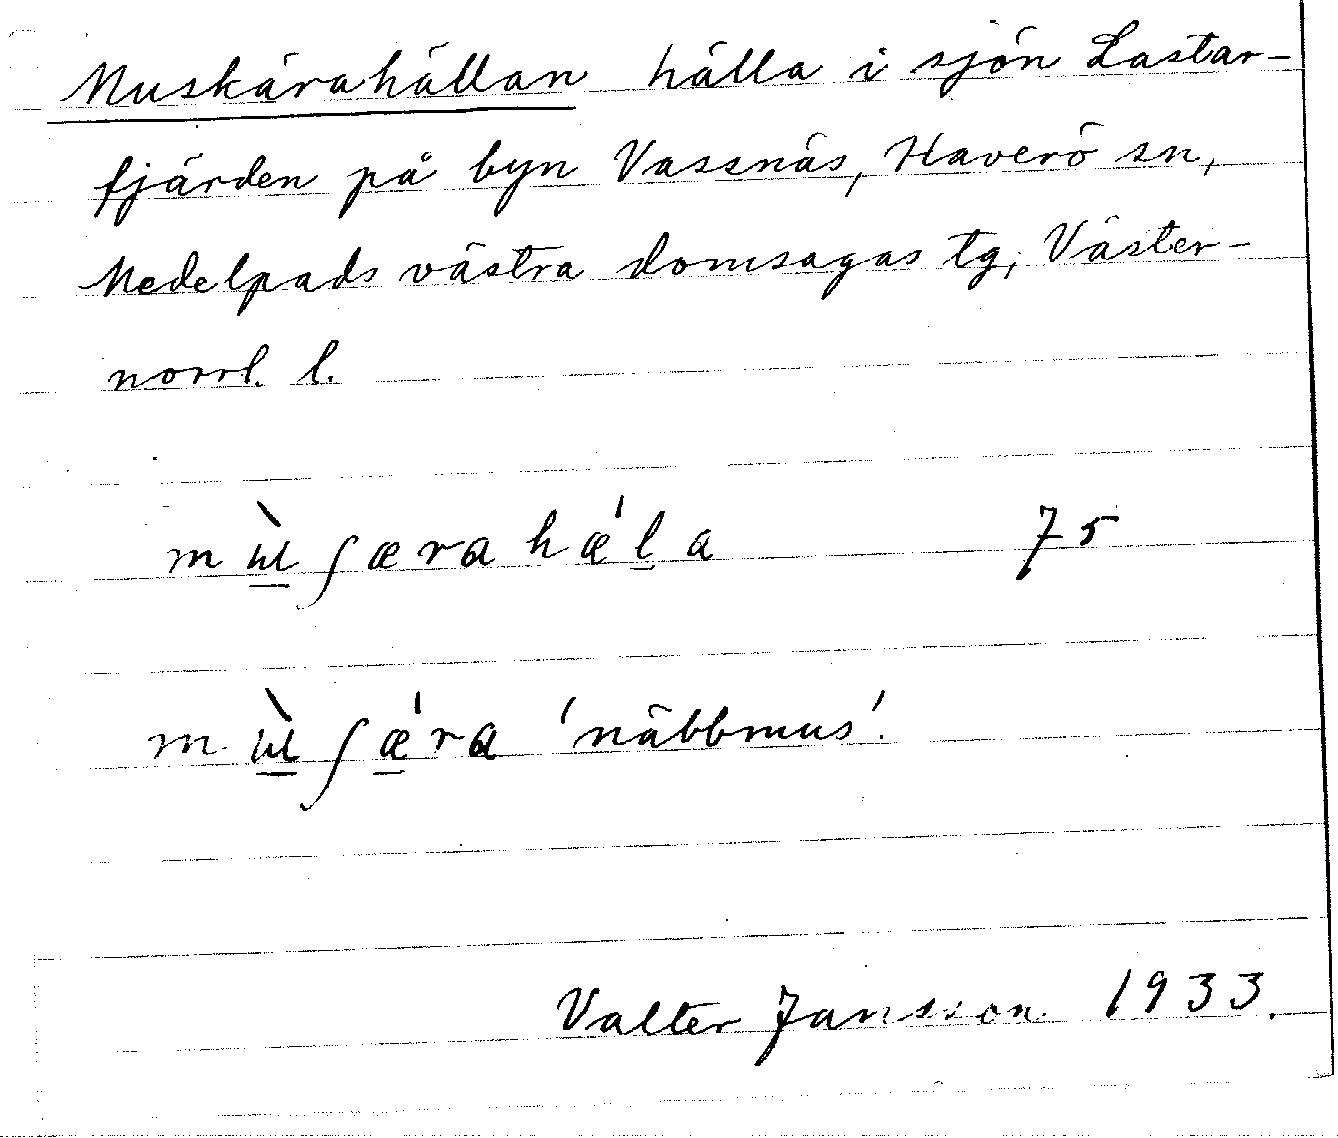 Muskärahällan hälla i sjön Lastar-
fjärden på byn Vassnäs, Haverö sn,
Medelpads västra domsagas tg, Väster-
norrl. l.
mɯ̲̀ʃærahǽl̲a 75
mɯ̲̀ʃǽ̲ra 'näbbmus'.
Valter Jansson 1933.